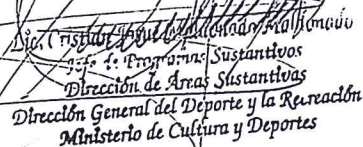 Lic. Cristian Maldonado Maldonado
Jefe de Programas Sustantivos
Dirección de Áreas Sustantivas
Dirección General del Deporte y la Recreación
Ministerio de Cultura y Deportes